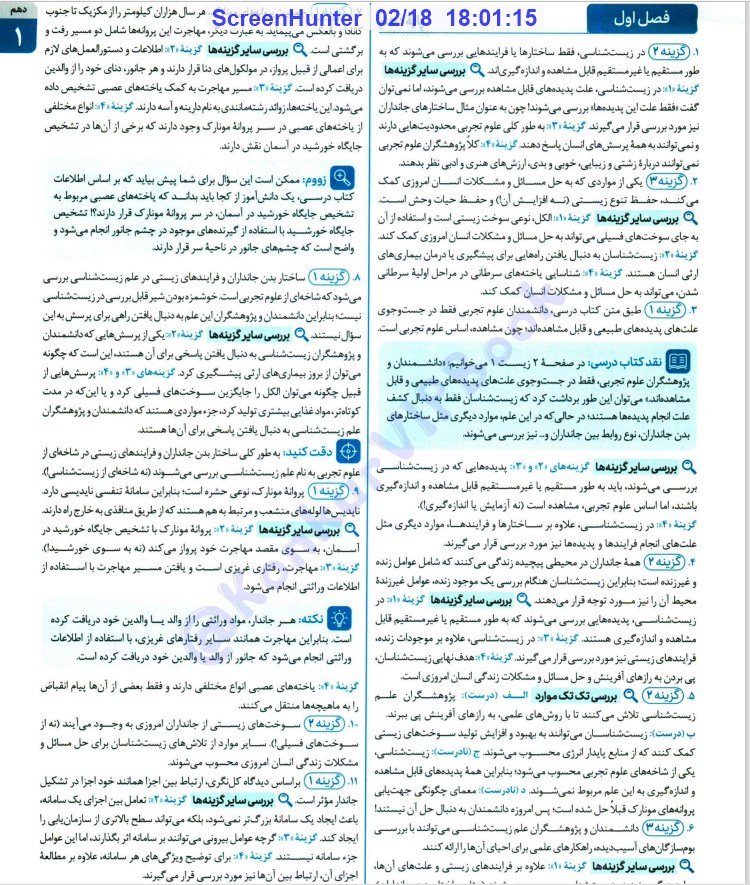 ScreenHunter 02/18 18:01:15
فصل اول
۱. گزینه ۲ در زیست‌شناسی، فقط ساختارها یا فرایندهایی بررسی می‌شوند که به
طور مستقیم یا غیرمستقیم قابل مشاهده و اندازه‌گیری‌اند. بررسی سایر گزینه‌ها
گزینهٔ «۱»: در زیست‌شناسی، علت پدیده‌های قابل مشاهده بررسی می‌شوند، اما نمی‌توان
گفت «فقط علت این پدیده‌ها» بررسی می‌شوند! چون به عنوان مثال ساختارهای جانداران
نیز مورد بررسی قرار می‌گیرند. گزینهٔ «۳»: به طور کلی علوم تجربی محدودیت‌هایی دارند
و نمی‌توانند به همهٔ پرسش‌های انسان پاسخ دهند. گزینهٔ «۴»: کلاً پژوهشگران علوم تجربی
نمی‌توانند دربارهٔ زشتی و زیبایی، خوبی و بدی، ارزش‌های هنری و ادبی نظر بدهند.
۲. گزینه ۳ یکی از مواردی که به حل مسائل و مشکلات انسان امروزی کمک
می‌کند، حفظ تنوع زیستی (نه افزایش آن!) و حفظ حیات وحش است.
بررسی سایر گزینه‌ها گزینهٔ «۱»: الکل، نوعی سوخت زیستی است و استفاده از آن
به جای سوخت‌های فسیلی می‌تواند به حل مسائل و مشکلات انسان امروزی کمک کند.
گزینهٔ «۲»: زیست‌شناسان به دنبال یافتن راه‌هایی برای پیشگیری یا درمان بیماری‌های
ارثی انسان هستند. گزینهٔ «۴»: شناسایی یاخته‌های سرطانی در مراحل اولیهٔ سرطانی
شدن، می‌تواند به حل مسائل و مشکلات انسان کمک کند.
۳. گزینه ۱ طبق متن کتاب درسی، دانشمندان علوم تجربی فقط در جست‌وجوی
علت‌های پدیده‌های طبیعی و قابل مشاهده‌اند؛ چون مشاهده، اساس علوم تجربی است.
نقد کتاب درسی: در صفحهٔ ۲ زیست ۱ می‌خوانیم: «دانشمندان و
پژوهشگران علوم تجربی، فقط در جست‌وجوی علت‌های پدیده‌های طبیعی و قابل
مشاهده‌اند.» می‌توان این طور برداشت کرد که زیست‌شناسان فقط به دنبال کشف
علت انجام پدیده‌ها هستند؛ در حالی که در این علم، موارد دیگری مثل ساختارهای
بدن جانداران، نوع روابط بین جانداران و... نیز بررسی می‌شوند.
بررسی سایر گزینه‌ها گزینه‌های «۲» و «۳»: پدیده‌هایی که در زیست‌شناسی
بررسی می‌شوند، باید به طور مستقیم یا غیرمستقیم قابل مشاهده و اندازه‌گیری
باشند، اما اساس علوم تجربی، مشاهده است (نه آزمایش یا اندازه‌گیری!).
گزینهٔ «۴»: در زیست‌شناسی، علاوه بر ساختارها و فرایندها، موارد دیگری مثل
علت‌های انجام فرایندها و پدیده‌ها نیز مورد بررسی قرار می‌گیرند.
۴. گزینه ۲ همهٔ جانداران در محیطی پیچیده زندگی می‌کنند که شامل عوامل زنده
و غیرزنده است؛ بنابراین زیست‌شناسان هنگام بررسی یک موجود زنده، عوامل غیرزندهٔ
محیط آن را نیز مورد توجه قرار می‌دهند. بررسی سایر گزینه‌ها گزینهٔ «۱»: در
زیست‌شناسی، پدیده‌هایی بررسی می‌شوند که به طور مستقیم یا غیرمستقیم قابل
مشاهده و اندازه‌گیری هستند. گزینهٔ «۳»: در زیست‌شناسی، علاوه بر موجودات زنده،
فرایندهای زیستی نیز مورد بررسی قرار می‌گیرند. گزینهٔ «۴»: هدف نهایی زیست‌شناسان،
پی بردن به رازهای آفرینش و حل مسائل و مشکلات زندگی انسان امروزی است.
۵. گزینه ۲ بررسی تک تک موارد الف (درست): پژوهشگران علم
زیست‌شناسی تلاش می‌کنند تا با روش‌های علمی، به رازهای آفرینش پی ببرند.
ب (درست): زیست‌شناسان می‌توانند به بهبود و افزایش تولید سوخت‌های زیستی
کمک کنند که از منابع پایدار انرژی محسوب می‌شوند. ج (نادرست): زیست‌شناسی،
یکی از شاخه‌های علوم تجربی محسوب می‌شود؛ بنابراین همهٔ پدیده‌های قابل مشاهده
به این علم مربوط نمی‌شوند. د (نادرست): معمای چگونگی جهت‌یابی
پروانه‌های مونارک قبلاً حل شده است؛ پس امروزه دانشمندان به دنبال حل آن نیستند!
۶. گزینه ۳ دانشمندان و پژوهشگران علم زیست‌شناسی می‌توانند با بررسی
بوم‌سازگان‌های آسیب‌دیده، راهکارهای علمی برای احیای آن‌ها را ارائه کنند.
بررسی سایر گزینه‌ها گزینهٔ «۱»: علاوه بر فرایندهای زیستی و علت‌های آن‌ها،
دهم
۱
هر سال هزاران کیلومتر را از مکزیک تا جنوب
کانادا و بالعکس می‌پیماید. به عبارت دیگر، مهاجرت این پروانه‌ها شامل دو مسیر رفت و
برگشتی است. بررسی سایر گزینه‌ها گزینهٔ «۲»: اطلاعات و دستورالعمل‌های لازم
برای اعمالی از قبیل پرواز، در مولکول‌های دنا قرار دارند و هر جانور، دنای خود را از والدین
دریافت کرده است. گزینهٔ «۳»: مسیر مهاجرت به کمک یاخته‌های عصبی تشخیص داده
می‌شود. این یاخته‌ها، زوائد رشته‌مانندی به نام دارینه و آسه دارند. گزینهٔ «۴»: انواع مختلفی
از یاخته‌های عصبی در سر پروانهٔ مونارک وجود دارند که برخی از آن‌ها در تشخیص
جایگاه خورشید در آسمان نقش دارند.
زووم: ممکن است این سؤال برای شما پیش بیاید که بر اساس اطلاعات
کتاب درسی، یک دانش‌آموز از کجا باید بداند که یاخته‌های عصبی مربوط به
تشخیص جایگاه خورشید در آسمان، در سر پروانهٔ مونارک قرار دارند؟! تشخیص
جایگاه خورشید با استفاده از گیرنده‌های موجود در چشم جانور انجام می‌شود و
واضح است که چشم‌های جانور در ناحیهٔ سر قرار دارند.
۸. گزینه ۱ ساختار بدن جانداران و فرایندهای زیستی در علم زیست‌شناسی بررسی
می‌شود که شاخه‌ای از علوم تجربی است. خوشمزه بودن شیر قابل بررسی در زیست‌شناسی
نیست؛ بنابراین دانشمندان و پژوهشگران این علم به دنبال یافتن راهی برای پرسش به این
سؤال نیستند. بررسی سایر گزینه‌ها گزینهٔ «۲»: یکی از پرسش‌هایی که دانشمندان
و پژوهشگران زیست‌شناسی به دنبال یافتن پاسخی برای آن هستند، این است که چگونه
می‌توان از بروز بیماری‌های ارثی پیشگیری کرد. گزینه‌های «۳» و «۴»: پرسش‌هایی از
قبیل چگونه می‌توان الکل را جایگزین سوخت‌های فسیلی کرد و یا این‌که در مدت
کوتاه‌تر، مواد غذایی بیشتری تولید کرد، جزء مواردی هستند که دانشمندان و پژوهشگران
علم زیست‌شناسی به دنبال یافتن پاسخی برای آن‌ها هستند.
دقت کنید: به طور کلی ساختار بدن جانداران و فرایندهای زیستی در شاخه‌ای از
علوم تجربی به نام علم زیست‌شناسی بررسی می‌شوند (نه شاخه‌ای از زیست‌شناسی!).
۹. گزینه ۱ پروانهٔ مونارک، نوعی حشره است؛ بنابراین سامانهٔ تنفسی نایدیسی دارد.
نایدیس‌ها لوله‌های منشعب و مرتبط به هم هستند که از طریق منافذی به خارج راه دارند.
بررسی سایر گزینه‌ها گزینهٔ «۲»: پروانهٔ مونارک با تشخیص جایگاه خورشید در
آسمان، به سوی مقصد مهاجرت خود پرواز می‌کند (نه به سوی خورشید!).
گزینهٔ «۳»: مهاجرت، رفتاری غریزی است و یافتن مسیر مهاجرت با استفاده از
اطلاعات وراثتی انجام می‌شود.
نکته: هر جاندار، مواد وراثتی را از والد یا والدین خود دریافت کرده
است. بنابراین مهاجرت همانند سایر رفتارهای غریزی، با استفاده از اطلاعات
وراثتی انجام می‌شود که جانور از والد یا والدین خود دریافت کرده است.
گزینهٔ «۴»: یاخته‌های عصبی انواع مختلفی دارند و فقط بعضی از آن‌ها پیام انقباض
را به ماهیچه‌ها منتقل می‌کنند.
۱۰. گزینه ۲ سوخت‌های زیستی از جانداران امروزی به وجود می‌آیند (نه از
سوخت‌های فسیلی!). سایر موارد از تلاش‌های زیست‌شناسان برای حل مسائل و
مشکلات زندگی انسان امروزی محسوب می‌شوند.
۱۱. گزینه ۱ براساس دیدگاه کل‌نگری، ارتباط بین اجزا همانند خود اجزا در تشکیل
جاندار مؤثر است. بررسی سایر گزینه‌ها گزینهٔ «۲»: تعامل بین اجزای یک سامانه،
باعث ایجاد یک سامانهٔ بزرگ‌تر نمی‌شود، بلکه می‌تواند سطح بالاتری از سازمان‌یابی را
ایجاد کند. گزینهٔ «۳»: گرچه عوامل بیرونی می‌توانند بر سامانه اثر بگذارند، اما این عوامل
جزء سامانه نیستند. گزینهٔ «۴»: برای توضیح ویژگی‌های هر سامانه، علاوه بر مطالعهٔ
اجزای آن، ارتباط بین آن‌ها نیز مورد بررسی قرار می‌گیرند.